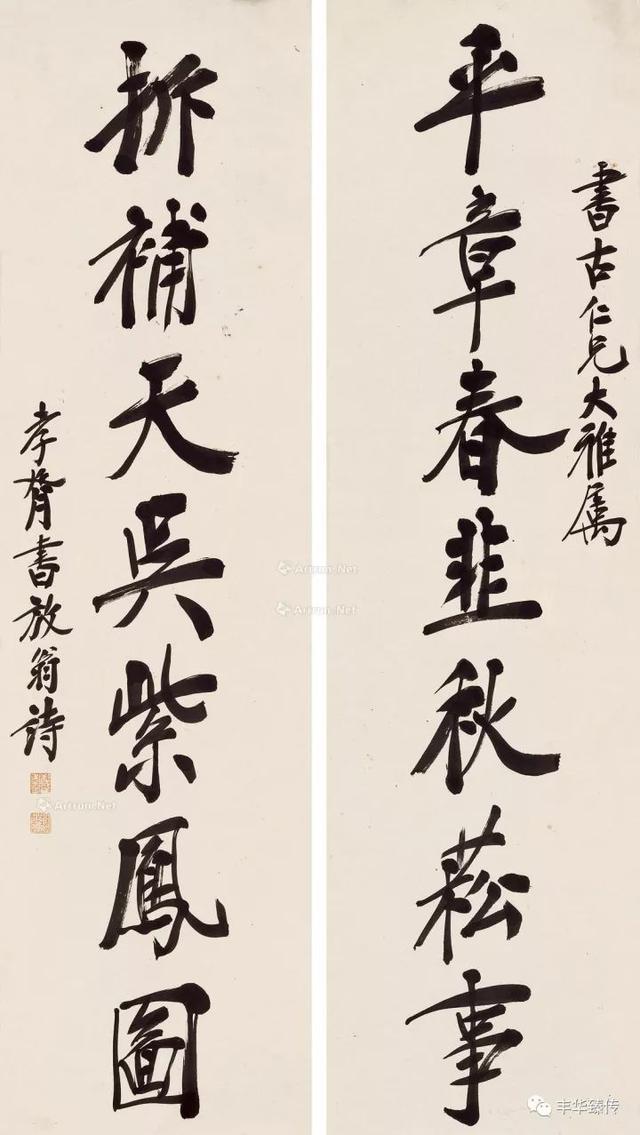 書古仁兄大雅属
平章春韭秋菘事
拆補天吳紫鳳圖
孝胥書放翁詩
Artron.Net
Artron.Net
Artron.Net
丰华臻传